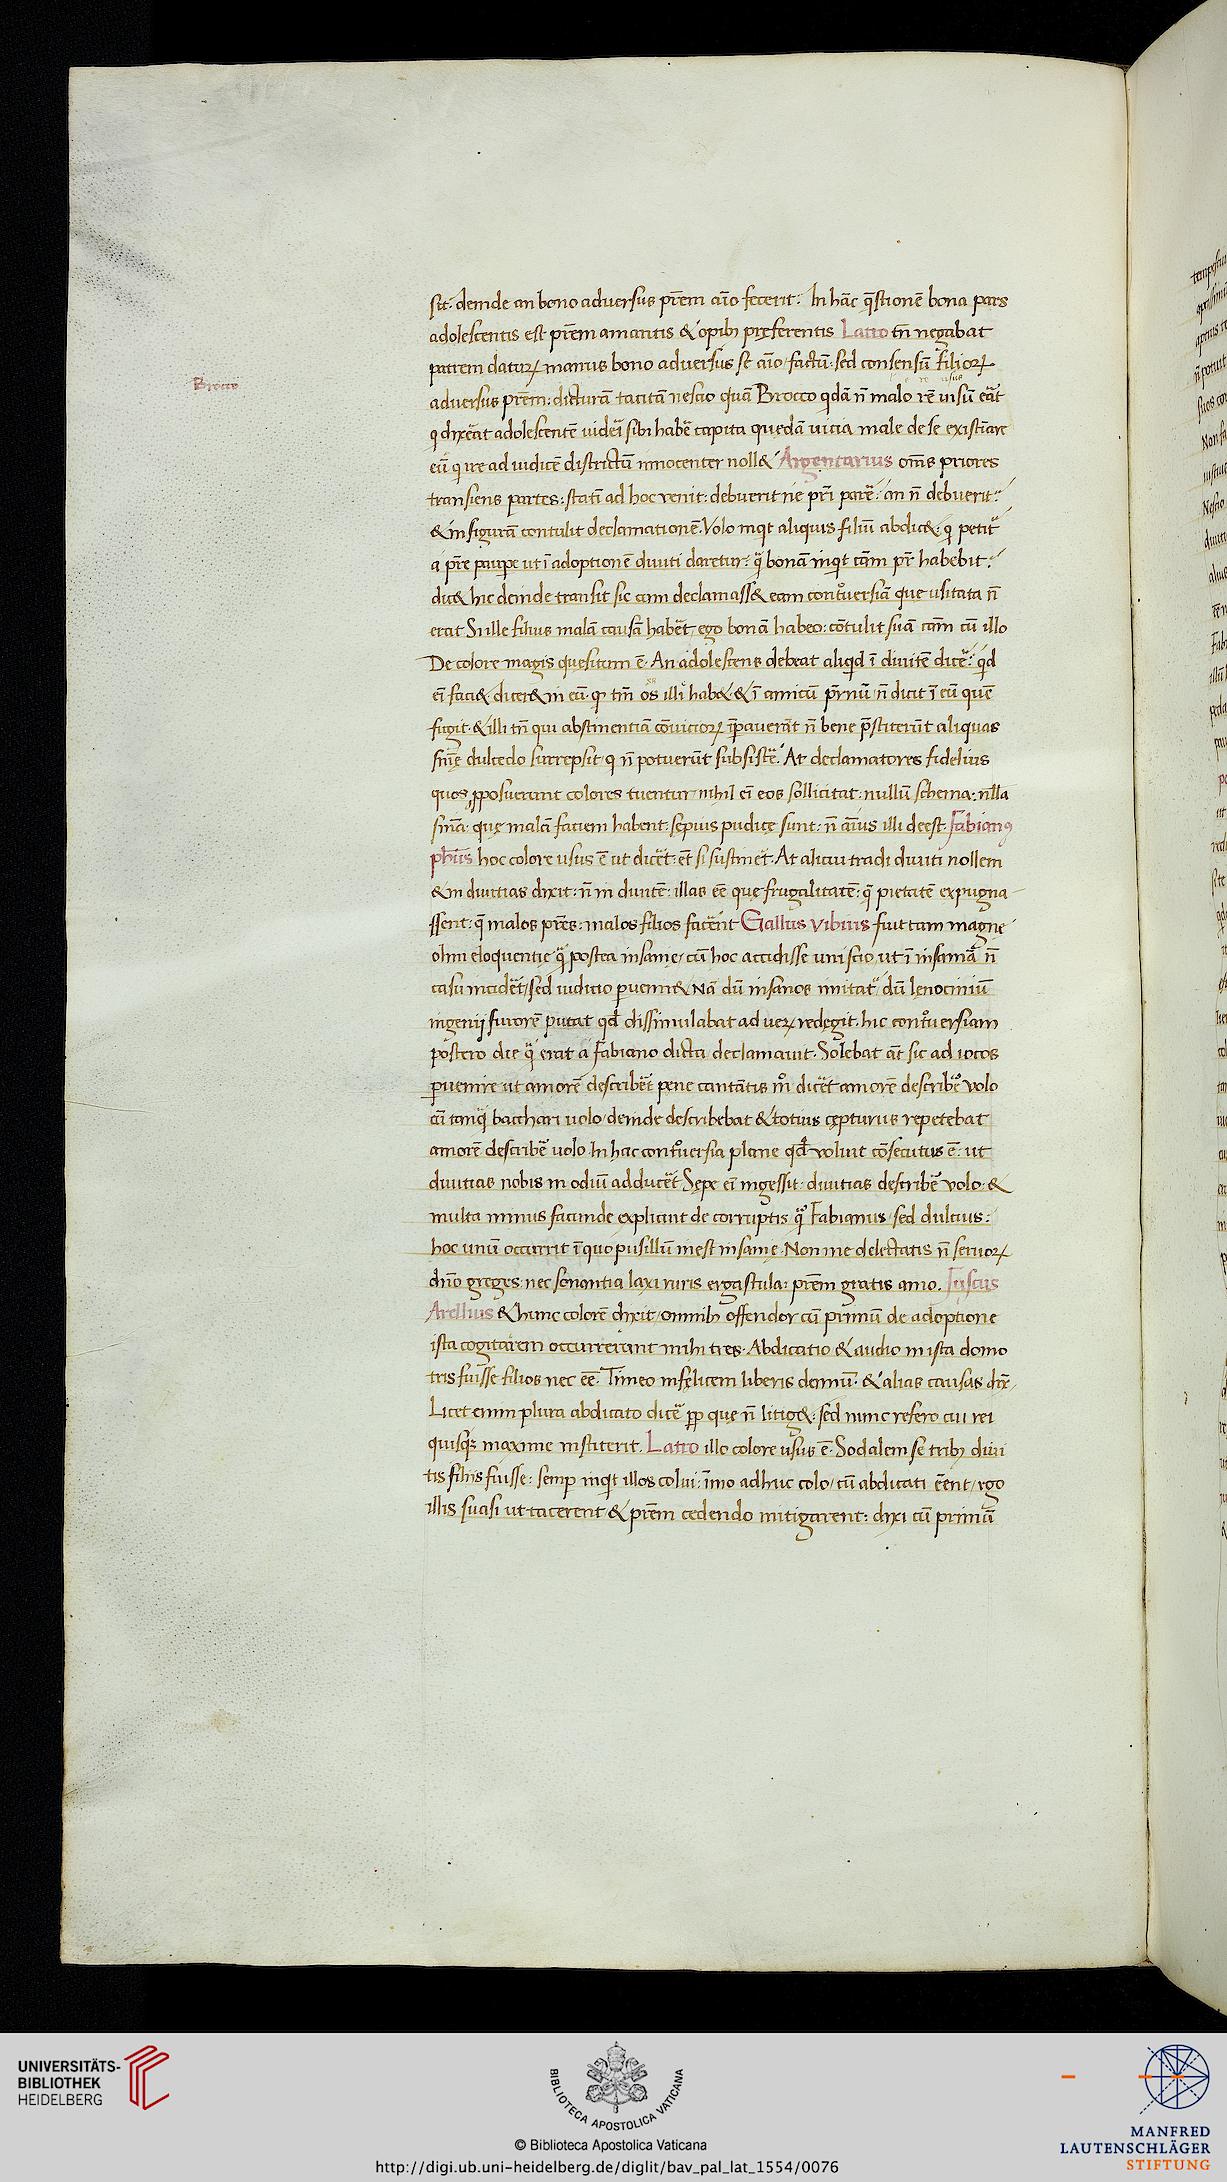 sit. deinde an bono adversus p̄rem aīo fecerit: In hāc q̄stionē bona pars
adolescentis est p̄rem amantis & opibꝫ pręferentis Latro tn̄ negabat
patrem daturꝝ manus bono adversus se aīo factū. sed consensū filiorꝝ
Brocco
adversus p̄rem: dicturā tacitā nescio quā Brocco qdā n̄ malo rē uisū eāt
q dixēat adolescentē uidēi sibi habē capita quedā uicia male de se existīare
eū q ire ad iudicē districtū innocenter noll& Argentarius om̄s priores
transiens partes: statī ad hoc venit: debuerit ne pr̄i parē: an n̄ debuerit:
& in figurā contulit declamationē. Volo inqt aliquis filiū abdic&: q petit᷑
a pr̄e paupe ut ī adoptionē diuiti daretur: q̄ bonā inqt cām pr̄ habebit:
dic& hic deinde transit sic eam declamass& eam cont°uersiā que usitata n̄
erat Si ille filius malā causā habēt, ego bonā habeo: cōtulit suā cām cū illo
De colore magis quesitum ē. An adolescens debeat aliqid ī diuitē dicē: qd
eī faci& dicer& in eū. q tm̄ os illi hab&. & ī amicū p̄rnū n̄ dicit ī eū quē
fugit. & illi tn̄ qui abstinentiā cōviciorꝝ īpaverāt n̄ bene p̄stiterūt aliquas
sn̄ię dulcedo surrepsit q n̄ potuerūt subsistē. At declamatores fidelius
quos pposuerunt colores tuentur nihil eī eos sollicitat: nullū schema: nlla
sn̄ia: quę malā faciem habent. sępius pudicę sunt: n̄ aīus illi deest. Fabianꝰ
phūs hoc colore usus ē ut dicēt: et̄ si sustinēt. At alicui tradi diuiti nollem
& in diuitias dixit: n̄ in diuitē: illas eē quę frugalitatē: q̄ pietatē expugna-
ssent: q̄ malos pr̄es: malos filios facēnt Gallus Vibius fuit tam magnę
olim eloquentię q̄ postea insanię, cū hoc accidisse uni scio, ut ī insaniā n̄
casu incidēt, sed iudicio pvenir& Nā dū insanos imitat᷑ dū lenocīniū
ingenij furorē putat qd dissimulabat ad verꝝ redegit. hic cont°versiam
postero die q̄ erat a Fabiano dicta declamavit. Solebat aūt sic ad locos
pvenire ut amorē describēt pene cantātis m̄ dicēt amorē describē volo
cū tanq̄ bacchari uolo, deinde describebat & totius cępturus repetebat
amorē describē uolo In hac cont°versia plane qd voluit cōsecutus ē: ut
diuitias nobis in odiū adducēt. Sępe eī ingessit: diuitias describē volo: &
multa minus facunde explicuit de corruptis q̄ Fabianus, sed dulcius:
hoc unū occurrit ī quo pusillū inest insanię. Non me delectatis n̄ servorꝝ
dn̄o greges: nec sonantia laxi ruris ergastula: prēm gratis amo. Fuscus
Arellius & hunc colorē dixit, omnibꝫ offendor cū primū de adoptione
ista cogitarem occurrerunt mihi tres. Abdicatio & audio in ista domo
tris fuisse filios nec eē. Timeo infęlicem liberis domū. & alias causas dix̄,
Licet enim plura abdicato dicē pp que n̄ litig&: sed nunc refero cui rei
quisqꝫ maxime institerit. Latro illo colore usus ē. Sodalem se tribꝫ diui
tis filiis fuisse: semp inqt illos colui: īmo adhuc colo, cū abdicati ēent, ego
illis suasi ut tacerent & prēm cedendo mitigarent: dixi cū primū
UNIVERSITÄTS-
BIBLIOTHEK
HEIDELBERG
BIBLIOTECA APOSTOLICA VATICANA
© Biblioteca Apostolica Vaticana
http://digi.ub.uni-heidelberg.de/diglit/bav_pal_lat_1554/0076
MANFRED
LAUTENSCHLÄGER
STIFTUNG